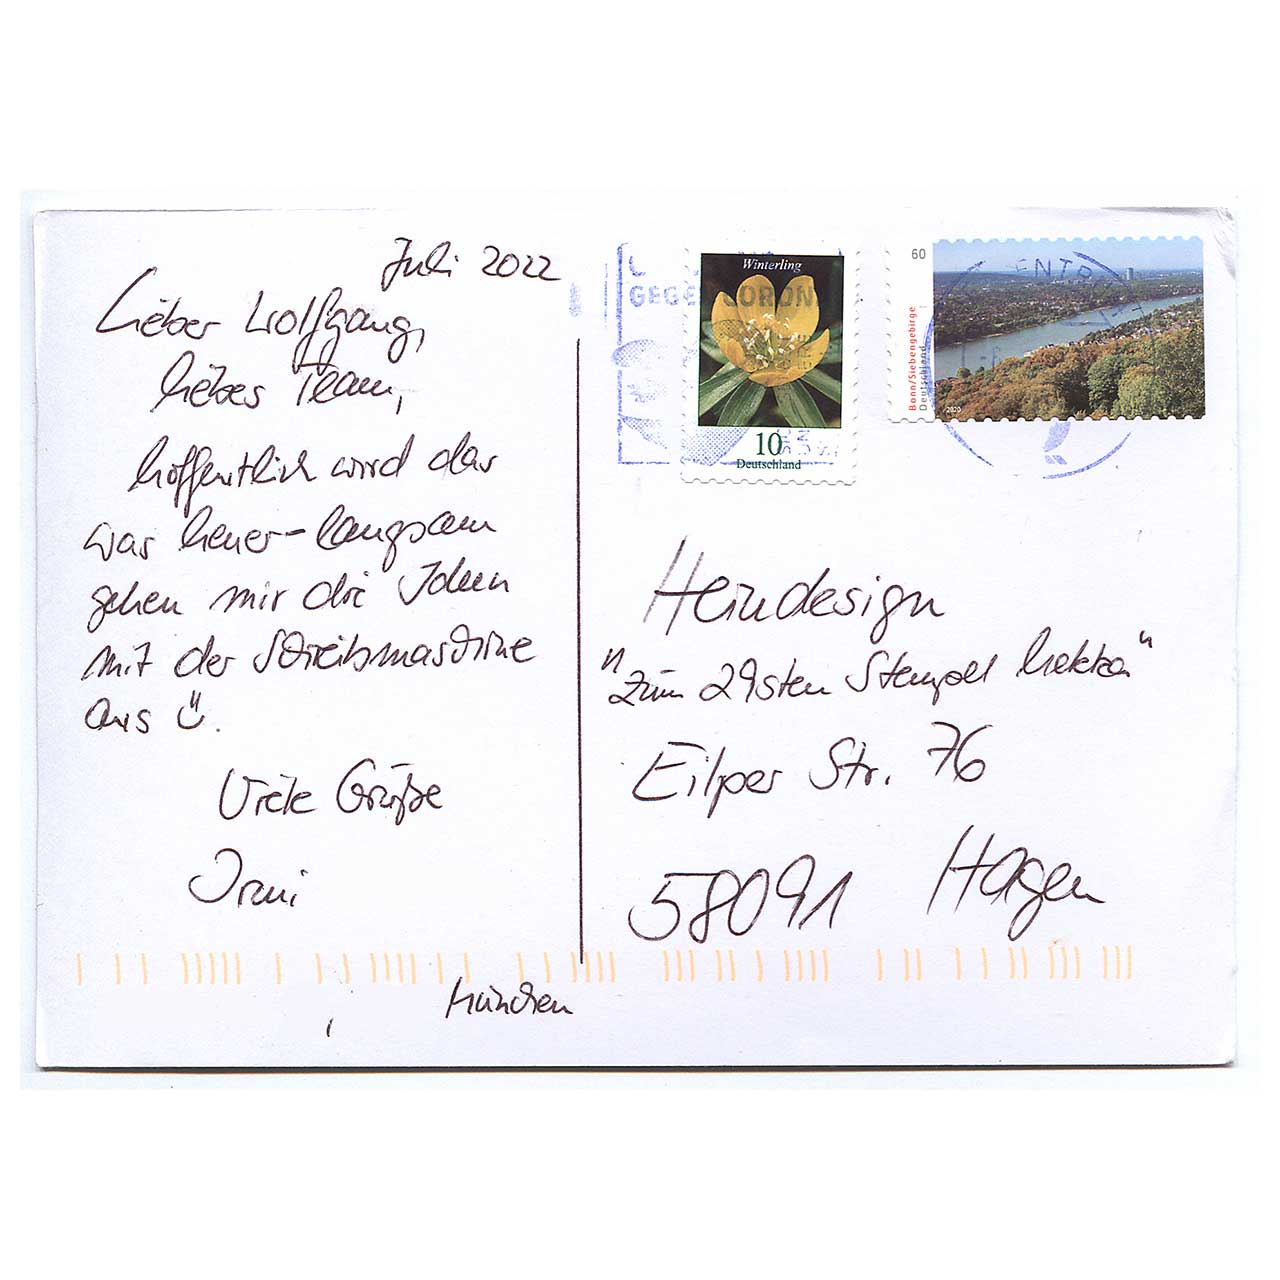 Juli 2022
Lieber Wolfgang,
liebes Team,
hoffentlich wird das
was heuer - langsam
gehen mir die Ideen
mit der Schreibmaschine
aus Ü.
Viele Grüße
Irmi
München
GEGEN CORON
Winterling
10
Deutschland
60
Bonn/Siebengebirge
Deutschland
2020
ENTR
Heindesign
"zum 29sten Stempel Mekka"
Eilper Str. 76
58091 Hagen